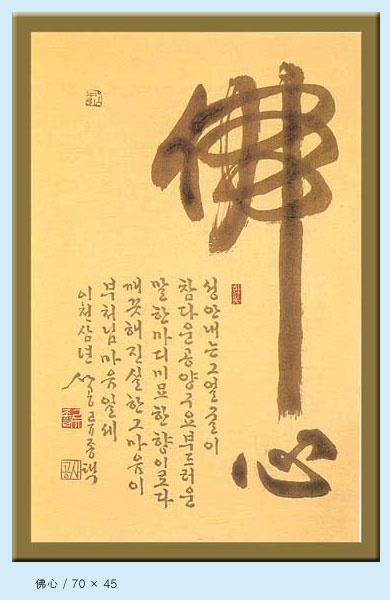 佛心
성안내는그얼굴이
참다운공양구요부드러운
말한마디미묘한향이로다
깨끗해진실한그마음이
부처님마음일세
이천삼년 류종택
佛心 / 70 × 45